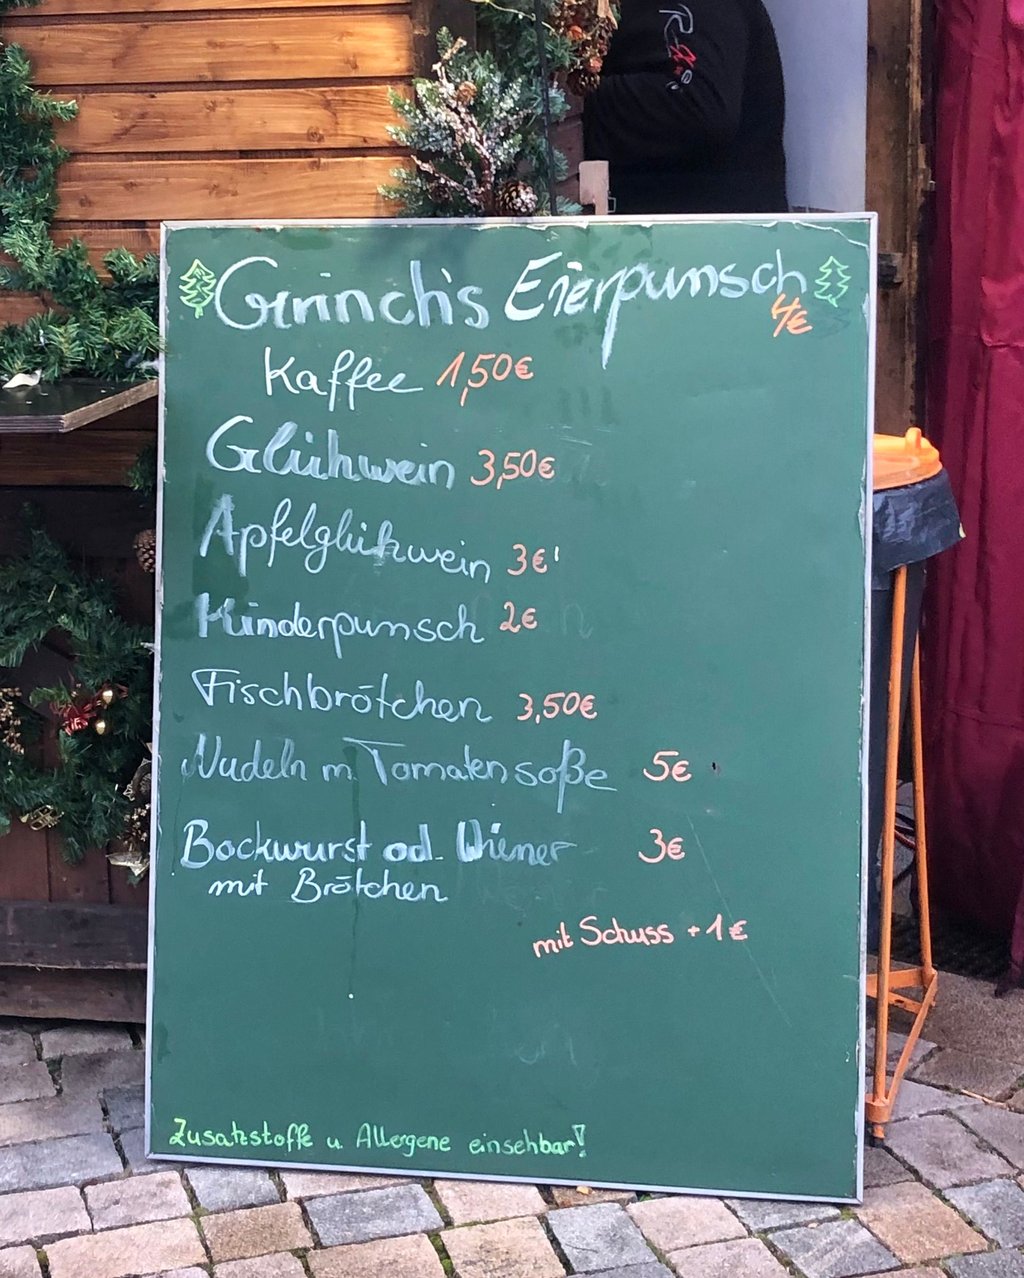 Grinch's Eierpunsch
4€
Kaffee 1,50€
Glühwein 3,50€
Apfelglühwein 3€
Kinderpunsch 2€
Fischbrötchen 3,50€
Nudeln m Tomatensoße 5€
Bockwurst od. Wiener 3€
mit Brötchen
mit Schuss + 1€
Zusatzstoffe u. Allergene einsehbar!